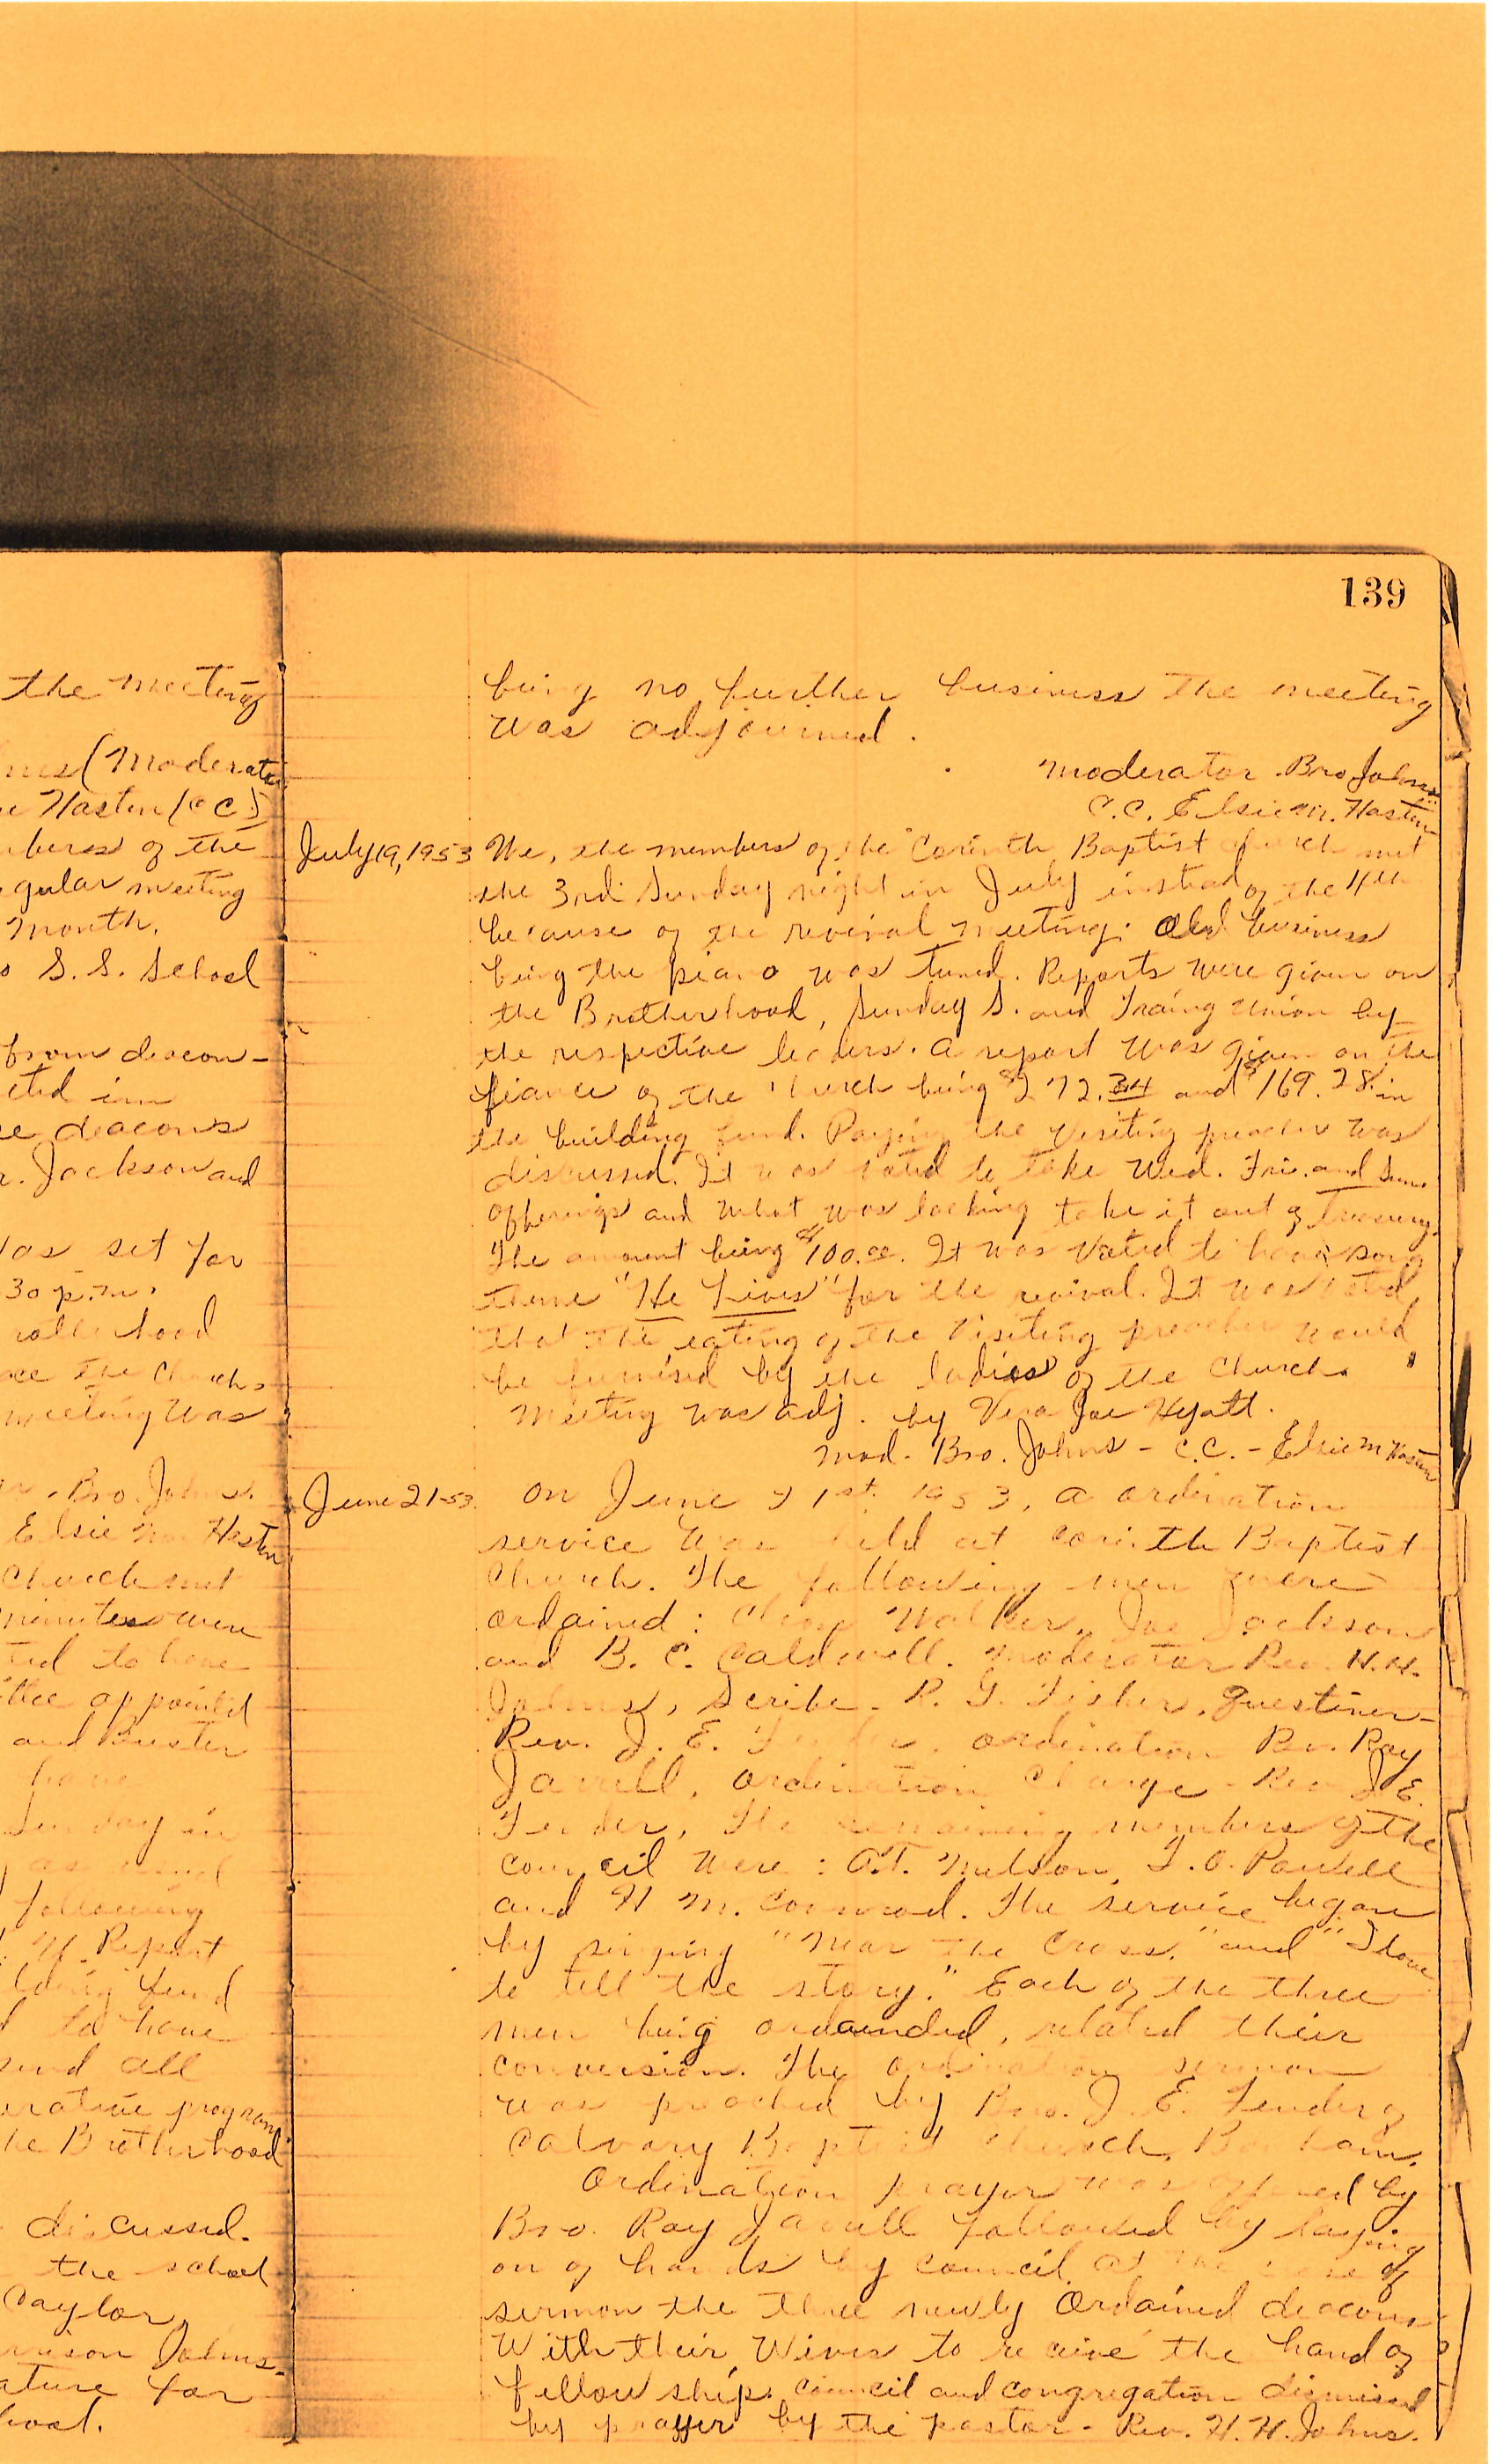 139
the meeting
(Moderator
Hasten (CC)
of the
gular meeting
month.
S. S. School
from deacon-
cted in
deacons
Jackson and
as set for
30 p.m.
hood
the Church.
meeting was
Bro. Johns.
Elsie M. Hasten
Church met
minutes were
ted to have
appointed
and Buster
have
Sunday in
as
following
Report
lding fund
to have
and all
erative program
he Brotherhood
discussed.
the school
Caylor,
Johns.
ature for
being no further business the meeting
was adjourned.
Moderator. Bro Johns
C.C. Elsie M. Hasten
July 19, 1953 We, the members of the Corinth Baptist church met
the 3rd Sunday night in July instead of the 4th
because of the revival meeting. Old business
being the piano was tuned. Reports were given on
the Brotherhood, Sunday S. and Traing Union by
the respective leaders. A report was given on the
fiance of the church being $272.34 and $169.28 in
the building fund. Paying the visiting preacher was
discussed. It was voted to take Wed. Fri. and Sun.
offerings and what was lacking take it out of treasury.
The amount being $100.00. It was voted to have song
theme "He Lives" for the revival. It was voted
that the eating of the visiting preacher would
be furnised by the ladies of the Church.
Meeting was adj. by Vera Joe Hyatt.
Mod. Bro. Johns - C.C. - Elsie M Hasten
June 21-53 On June 21st. 1953, a ordination
service was held at Corinth Baptist
Church. The following men were
ordained: Walker, Joe Jackson
and B. C. Caldwell. Moderator Rev. H. H.
Johns, Scribe - R. G. Fisher, Questiner -
Rev. J. E. Fender. ordination Rev. Ray
Javell, Ordination Charge - Rev J. E.
Fender, The remaining members of the
council were: A.T. Nelson, T. O. Powell
and H M. Coonrod. The service began
by singing "Near the Cross," and "I love
to tell the story." Each of the three
men being ordainded, related their
conversion. The ordination sermon
was preached by Bro. J. E. Fender of
Calvary Baptist Church, Bonham.
Ordination prayer was offered by
Bro. Ray Javell followed by laying
on of hands by council. At the close of
sermon the three newly Ordained deacons
With their Wives to receive the hand of
fellowship. Council and congregation dismissed
by prayer by the pastor - Rev. H. H. Johns.